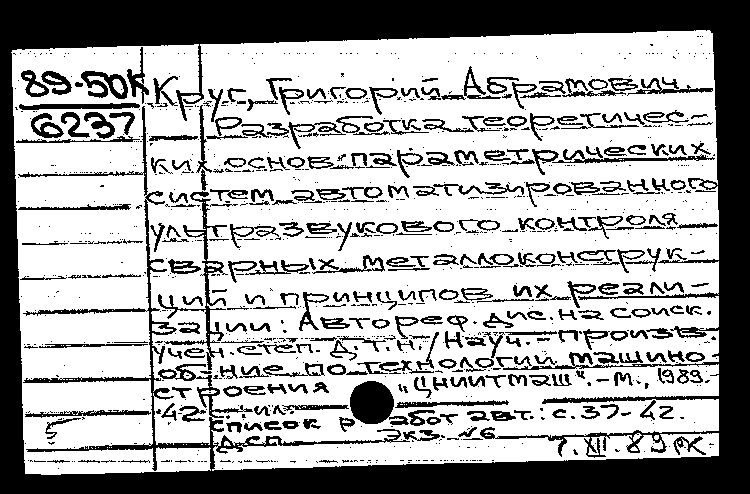 89-50К
6237
Круг, Григорий Абрамович.
Разработка теоретичес-
ких основ параметрических
систем автоматизированного
ультразвукового контроля
сварных металлоконструк-
ций и принципов их реали-
зации: Автореф. дис. на соиск.
учен. степ. д.т.н. / Науч.-произв.
об-ние по технологии машино-
строения "ЦНИИТМАШ". - М., 1989.-
42 с.: ил.
список работ авт.: с. 37-42.
Д.сп. Экз. №6
7.XII.89 рк